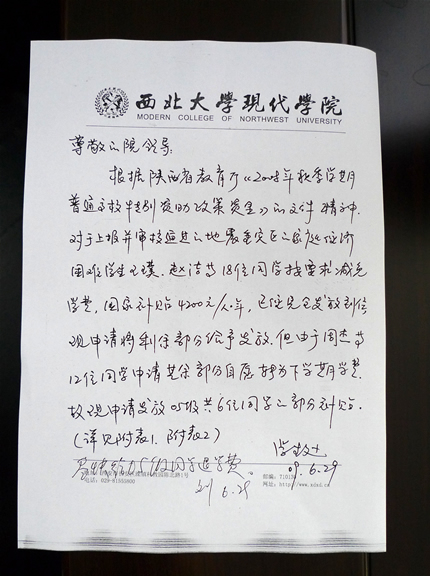 西北大學現代學院
MODERN COLLEGE OF NORTHWEST UNIVERSITY
尊敬的院领导:
根据陕西省教育厅《2008年秋季学期
普通高校特别资助政策资金》的文件精神,
对于上报并审核通过的地震重灾区的家庭经济
困难学生王璞、赵洁等18位同学按要求减免
学费,国家补贴4200元/人·年,已经先后发放到位
现申请将剩余部分给予发放,但由于周杰等
12位同学申请其余部分自愿转为下学期学费
故现申请发放05级共6位同学之部分补贴。
(详见附表1、附表2)
09.6.29
05级同学退学费。
6.29
电话:029-81555800
网址:http://www.xdxd.cn